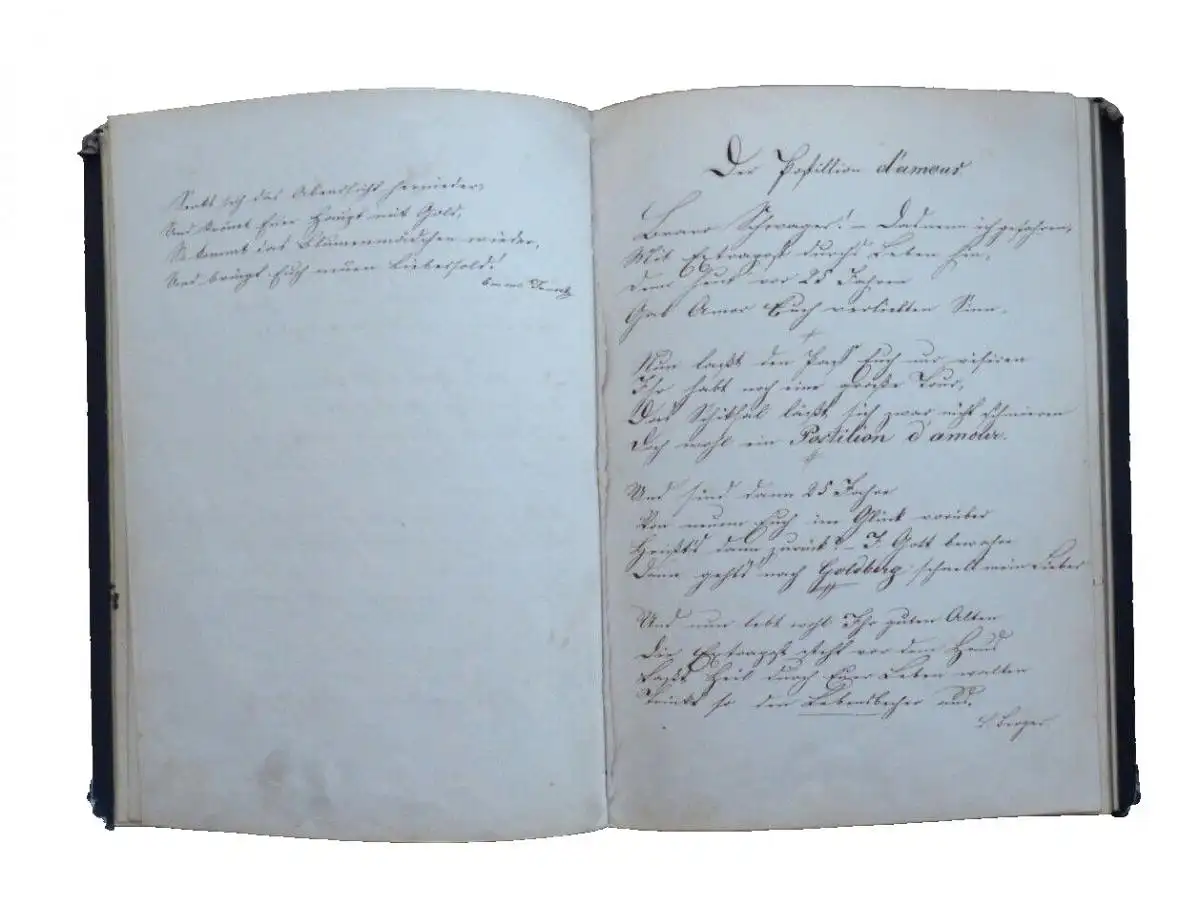 Senkt sich das Abendlicht hernieder,
Und krönt Euer Haupt mit Gold,
So kommt das Blumenmädchen wieder,
Und bringt Euch neuen Liebessold!
Der Postillion d'amour
Bravo Schwager! – Das nenn ich gefahren,
Mit Extrapost durchs Leben hin,
Denn heut vor 25 Jahren
Gab Amor Euch verliebten Sinn.
Nun laßt den Paß Euch nur visiren
Ihr habt noch eine große Tour,
Das Schiksal läßt sich zwar nicht schmieren
Doch wohl ein Postilion d'amour.
Und sind dann 25 Jahre
Von neuem Euch im Glück vorüber
Heißt's dann zurück? – I Gott bewahre
Dann geht's nach Goldberg schnell mein Lieber
Und nun lebt wohl Ihr guten Alten
Die Extrapost steht vor dem Haus
Laßt Heil durch Euer Leben walten
Trinkt so den Lebensbecher aus.
Berger